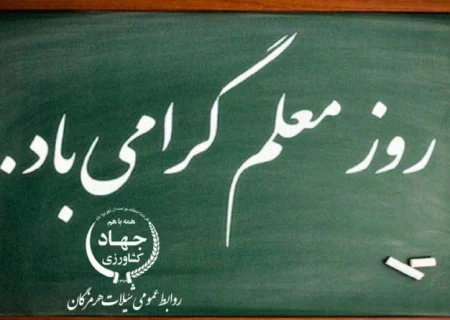 روز معلم گرامی باد.
همه با هم
جهاد
کشاورزی
روابط عمومی شیلات هرمزگان